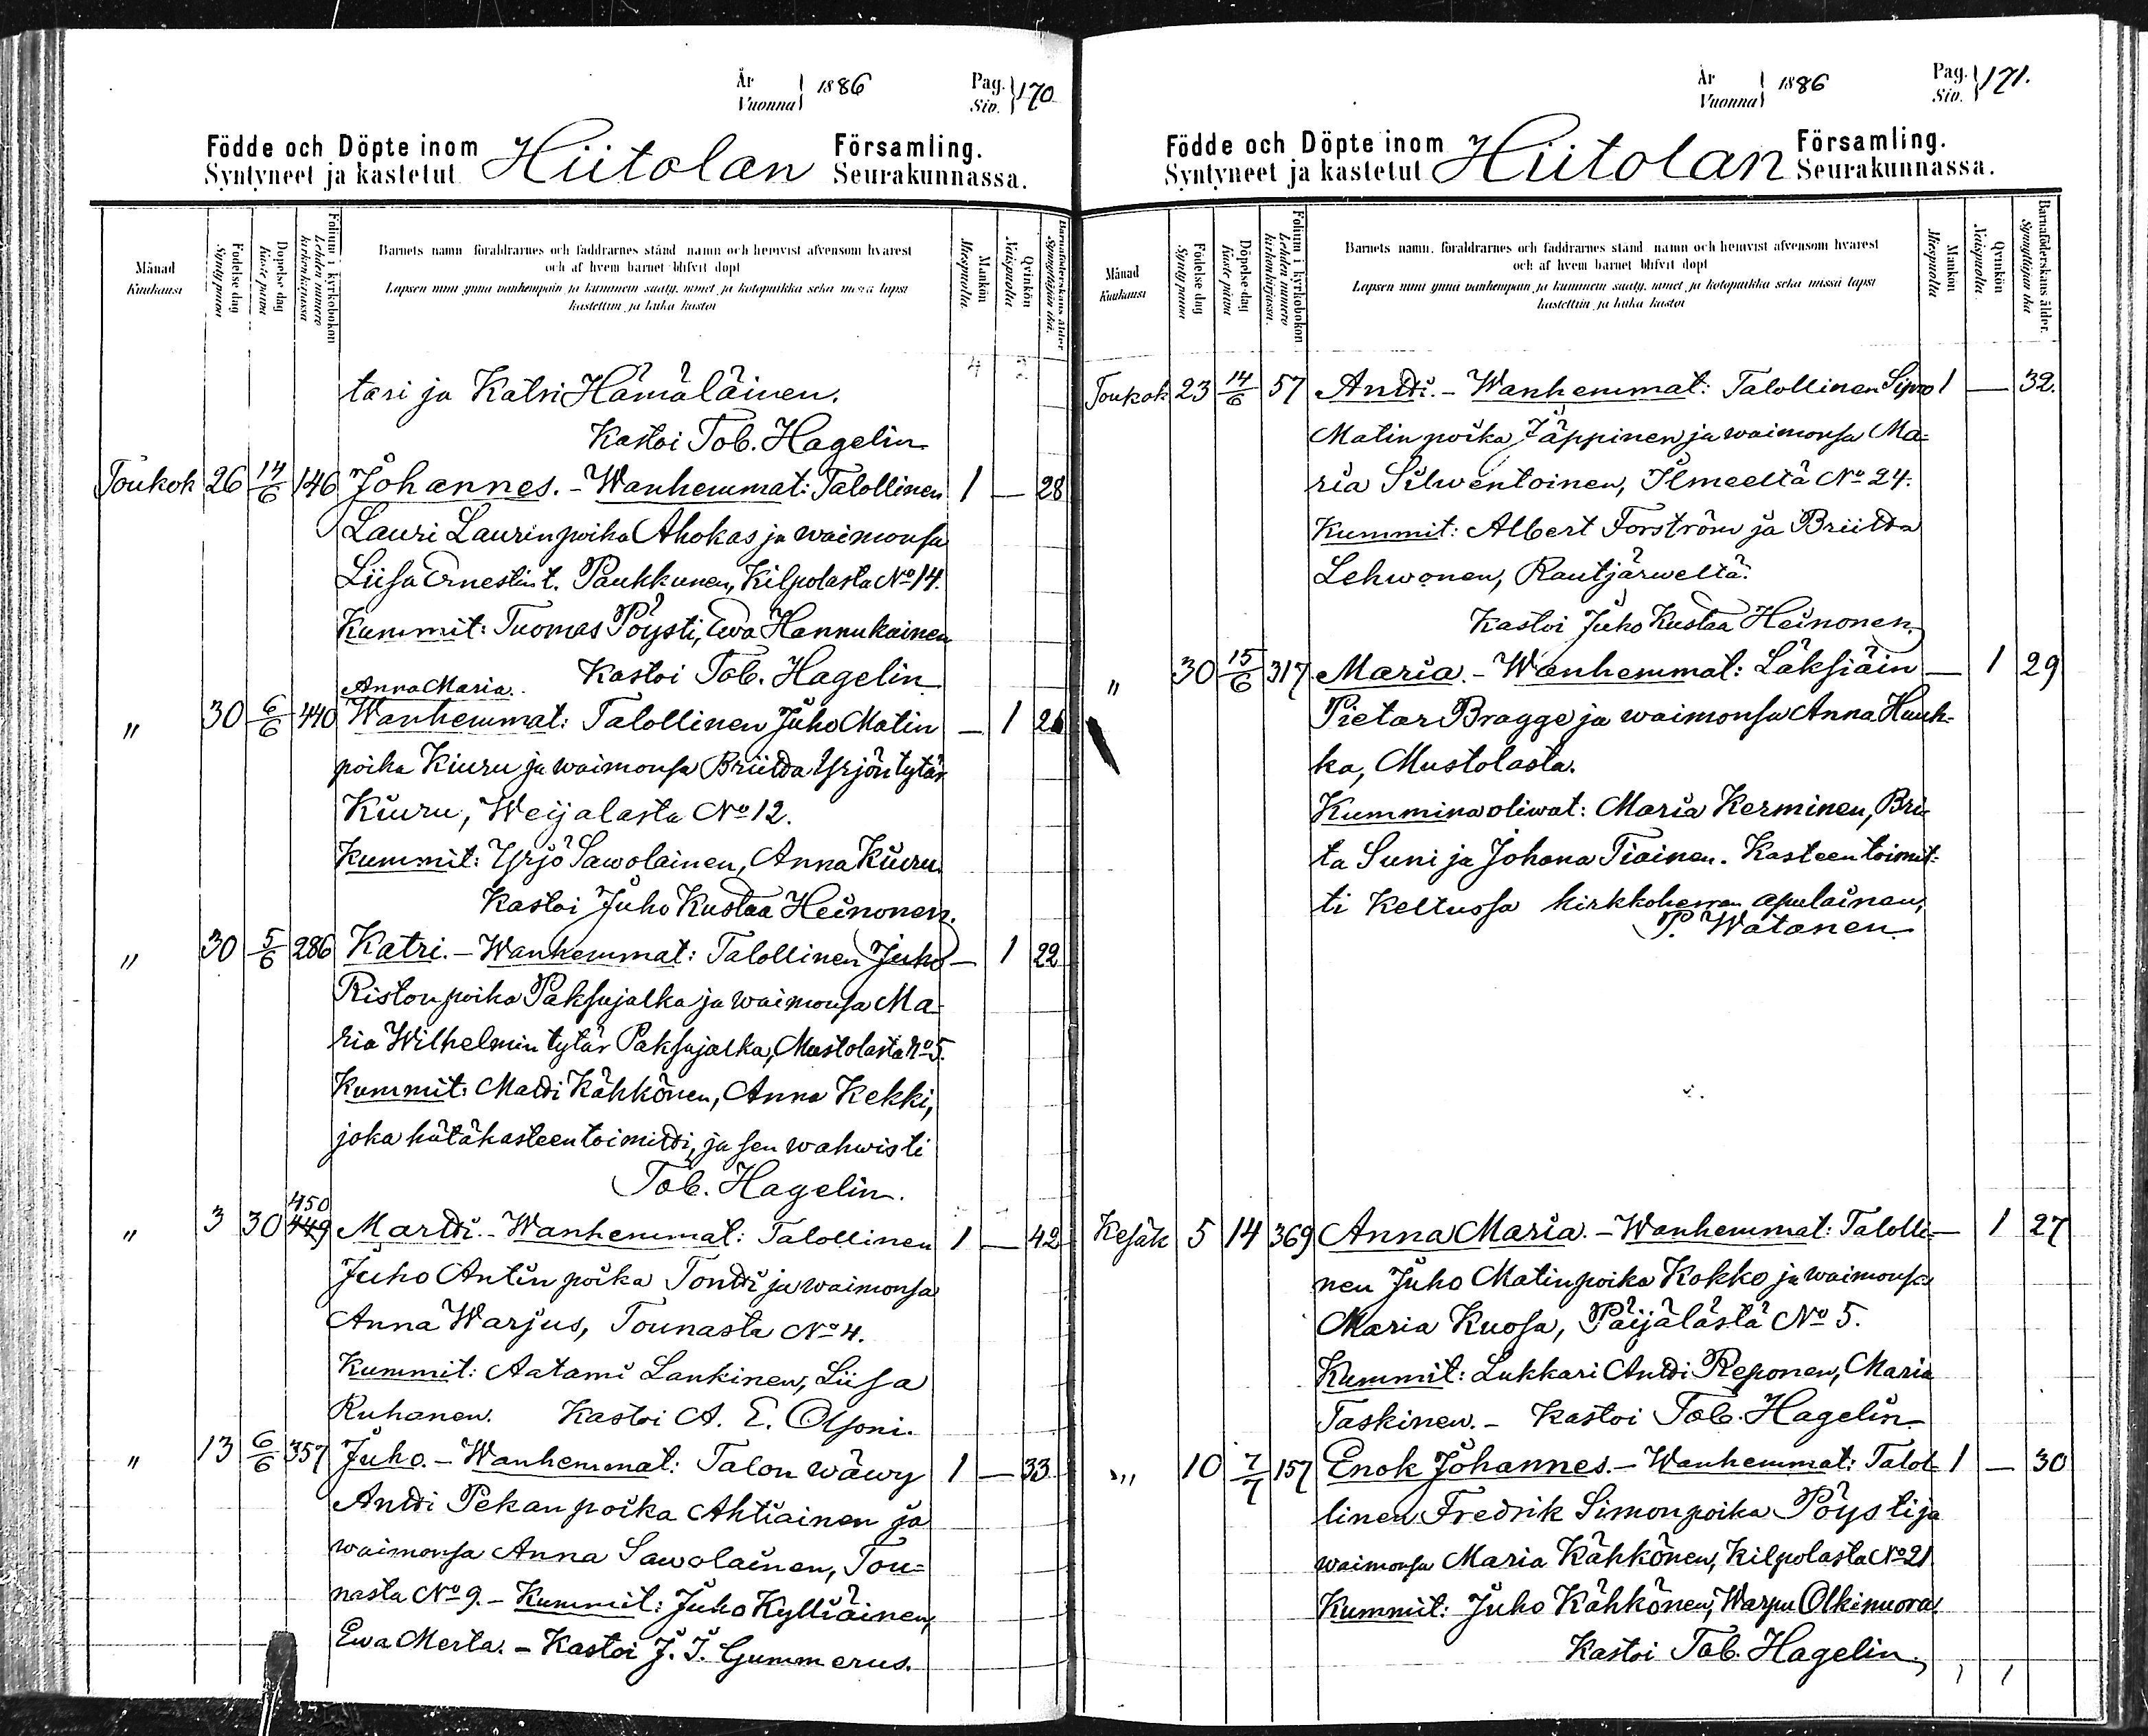 År Vuonna 1886 Pag. Siv. 170
Födde och Döpte inom Hiitolan Församling.
Syntyneet ja kastetut Seurakunnassa.
Månad Kuukausi
Födelse dag Synty paiva
Döpelse dag Kaste paiva
Folium i kyrkoboken Lehden numero kirkonkirjassa
Barnets namn foraldrarnes och faddrarnes stånd namn och hemvist afvensom hvarest
och af hvem barnet blifvit döpt
Lapsen nimi ynna vanhempain ja kummein saaty, nimet ja kotopaikka seka missa lapsi
kastettiin ja kuka kastoi
Mankön Miespuolta.
Qvinkön Naispuolta.
Barnaföderskans ålder Synnyttäjän ikä.
4 2
tari ja Katri Hämäläinen.
Kastoi Tob. Hagelin
Toukok 26 14/6 146 Johannes. - Wanhemmat: Talollinen 1 — 28
Lauri Laurinpoika Ahokas ja waimonsa
Liisa Ernestin t. Paukkunen, Kilpolasta No 14.
Kummit: Tuomas Pöysti, Ewa Hannukainen
Kastoi Tob. Hagelin
Anna Maria.
" 30 6/6 440 Wanhemmat: Talollinen Juho Matin — 1 26
poika Kiuru ja waimonsa Briitta Yrjön tytär
Kiuru, Weijalasta No 12.
Kummit: Yrjö Sawolainen, Anna Kiuru.
Kastoi Juho Kustaa Heinonen.
" 30 5/6 286 Katri. - Wanhemmat: Talollinen Juho — 1 22
Ristonpoika Paksujalka ja waimonsa Ma-
ria Wilhelmin tytär Paksujalka, Mustolasta No 5.
Kummit: Matti Kähkönen, Anna Kekki,
joka hätäkasteen toimitti, ja sen wahwisti
Tob. Hagelin.
450
" 3 30 449 Martti. - Wanhemmat: Talollinen 1 — 42
Juho Antin poika Tontti ja waimonsa
Anna Warjus, Tounasta No 4.
Kummit: Aatami Lankinen, Liisa
Ruhanen. Kastoi A. E. Olsoni.
" 13 6/6 357 Juho. - Wanhemmat: Talon wäwy 1 — 33
Antti Pekan poika Ahtiainen ja
waimonsa Anna Sawolainen, Tou=
nasta No 9. - Kummit: Juho Kylliäinen,
Ewa Merta. - Kastoi J. I. Gummerus.
År Vuonna 1886 Pag. Siv. 171.
Födde och Döpte inom Hiitolan Församling.
Syntyneet ja kastetut Seurakunnassa.
Månad Kuukausi
Födelse dag Synty paiva
Döpelse-dag Kaste päivä
Folium i kyrkoboken Lehden numero kirkonkirjassa.
Barnets namn. foraldrarnes och faddrarnes stånd namn och hemvist afvensom hvarest
och af hvem barnet blifvit döpt
Lapsen nimi ynnä vanhempain ja kummein saaty, nimet ja kotopaikka seka missä lapsi
kastettiin ja kuka kastoi
Mankön Miespuolta
Qvinkön Naispuolta.
Barnaföderskans ålder. Synnyttäjän ikä
Toukok 23 14/6 57 Antti. - Wanhemmat: Talollinen Sipro 1 — 32.
Matin poika Jäppinen ja waimonsa Ma=
ria Silwentoinen, Ilmeeltä No 24.
Kummit: Albert Forström ja Briitta
Lehwonen, Rautjärweltä.
Kastoi Juho Kustaa Heinonen.
" 30 15/6 317 Maria. - Wanhemmat: Läksiäin — 1 29
Pietar Bragge ja waimonsa Anna Huuh-
ka, Mustolasta.
Kummina oliwat: Maria Kerminen, Brii
ta Suni ja Johana Tiainen. Kasteen toimit=
ti Keltuosa kirkkoherran apulainen,
P. Watanen.
Kesäk 5 14 369 Anna Maria. - Wanhemmat: Talolli= — 1 27
nen Juho Matinpoika Kokko ja waimonsa
Maria Kuosa, Päijälästä No 5.
Kummit: Lukkari Antti Reponen, Maria
Taskinen. - Kastoi Tob. Hagelin
" 10 7/7 157 Enok Johannes. - Wanhemmat: Talol 1 — 30
linen Fredrik Simonpoika Pöysti ja
waimonsa Maria Kähkönen, Kilpolasta No 21
Kummit: Juho Kähkönen, Warpu Olkinuora.
Kastoi Tob. Hagelin.
1 1